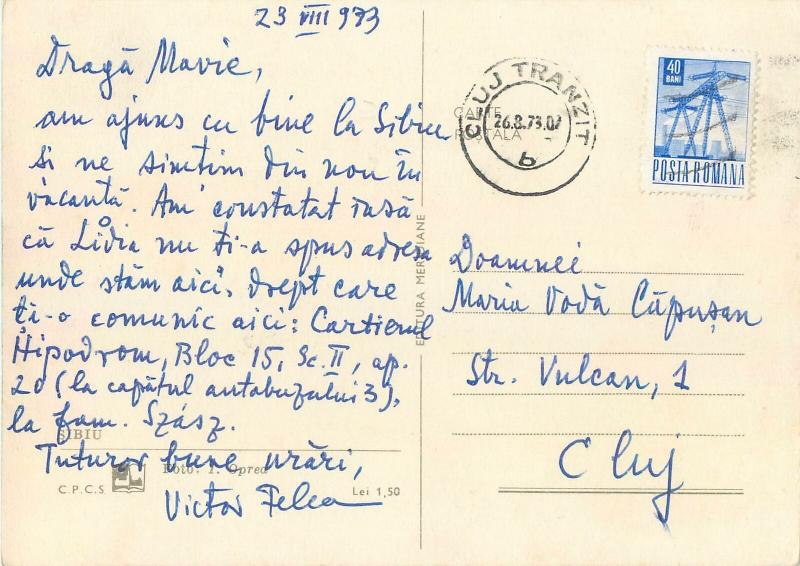 23 VIII 973
Dragă Mavie,
am ajuns cu bine la Sibiu
și ne simțim din nou în
vacanță. Am constatat însă
că Lidia nu ți-a spus adresa
unde stăm aici, drept care
ți-o comunic aici: Cartierul
Hipodrom, Bloc 15, Sc. II, ap.
20 (la capătul autobuzului 3),
la fam. Szász.
Tuturor bune urări,
Victor Felea
SIBIU
Foto: I. Oprea
C.P.C.S.
Lei 1,50
EDITURA MERIDIANE
CARTE
POȘTALĂ
CLUJ TRANZIT
26.8.73.07
b
40
BANI
POSTA ROMANA
Doamnei
Maria Vodă Căpușan
Str. Vulcan, 1
Cluj